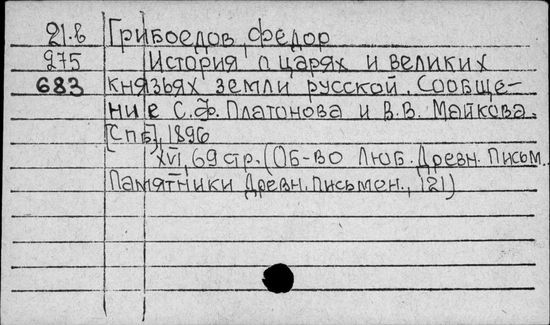 21.в Грибоедов, Федор
275 История о царях и великих
683 князьях земли русской. Сообще-
ние С.Ф. Платонова и В.В. Майкова.
[Спб], 1896
XVI, 69 стр. (Об-во Люб. Древн. Письм.
Памятники Древн. Письмен., 121)